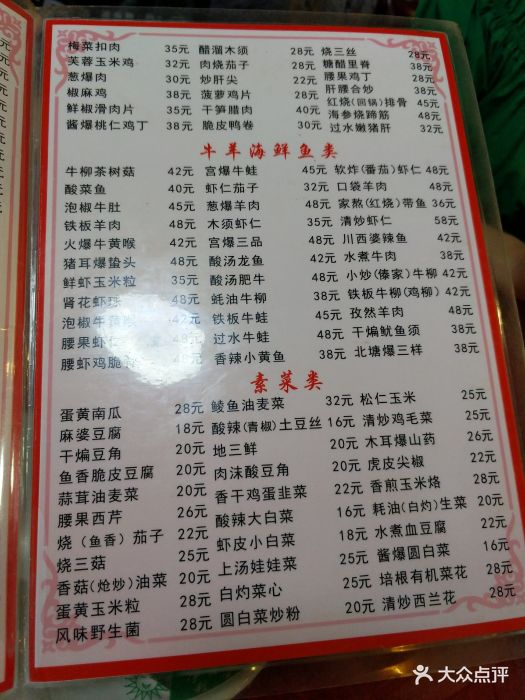 梅菜扣肉 35元 醋溜木须 28元 烧三丝 28元
芙蓉玉米鸡 32元 肉烧茄子 28元 糖醋里脊 38元
葱爆肉 30元 炒肝尖 22元 腰果鸡丁 28元
椒麻鸡 38元 菠萝鸡片 28元 肝腰合炒 38元
鲜椒滑肉片 35元 干笋腊肉 40元 红烧(回锅)排骨 45元
酱爆桃仁鸡丁 38元 脆皮鸭卷 30元 海参烧蹄筋 48元
过水嫩猪肝 32元
牛羊海鲜鱼类
牛柳茶树菇 42元 宫爆牛蛙 45元 软炸(番茄)虾仁 48元
酸菜鱼 40元 虾仁茄子 32元 口袋羊肉 48元
泡椒牛肚 45元 葱爆羊肉 48元 家熬(红烧)带鱼 36元
铁板羊肉 48元 木须虾仁 35元 清炒虾仁 58元
火爆牛黄喉 42元 宫爆三品 48元 川西婆辣鱼 42元
猪耳爆蛰头 48元 酸汤龙鱼 42元 水煮牛肉 38元
鲜虾玉米粒 35元 酸汤肥牛 48元 小炒(傣家)牛柳 42元
肾花虾球 48元 蚝油牛柳 38元 铁板牛柳(鸡柳) 42元
泡椒牛黄喉 42元 铁板牛蛙 48元 孜然羊肉 48元
腰果虾仁 48元 过水牛蛙 48元 干煸鱿鱼须 38元
腰虾鸡脆 48元 香辣小黄鱼 38元 北塘爆三样 38元
素菜类
蛋黄南瓜 28元 鲮鱼油麦菜 32元 松仁玉米 25元
麻婆豆腐 18元 酸辣(青椒)土豆丝 16元 清炒鸡毛菜 25元
干煸豆角 20元 地三鲜 20元 木耳爆山药 26元
鱼香脆皮豆腐 20元 肉沫酸豆角 20元 虎皮尖椒 22元
蒜茸油麦菜 20元 香干鸡蛋韭菜 25元 香煎玉米烙 28元
腰果西芹 26元 酸辣大白菜 16元 耗油(白灼)生菜 20元
烧(鱼香)茄子 22元 虾皮小白菜 18元 水煮血豆腐 22元
烧三菇 25元 上汤娃娃菜 25元 酱爆圆白菜 16元
香菇(炝炒)油菜 20元 白灼菜心 25元 培根有机菜花 28元
蛋黄玉米粒 28元 圆白菜炒粉 20元 清炒西兰花 28元
风味野生菌 28元
大众点评